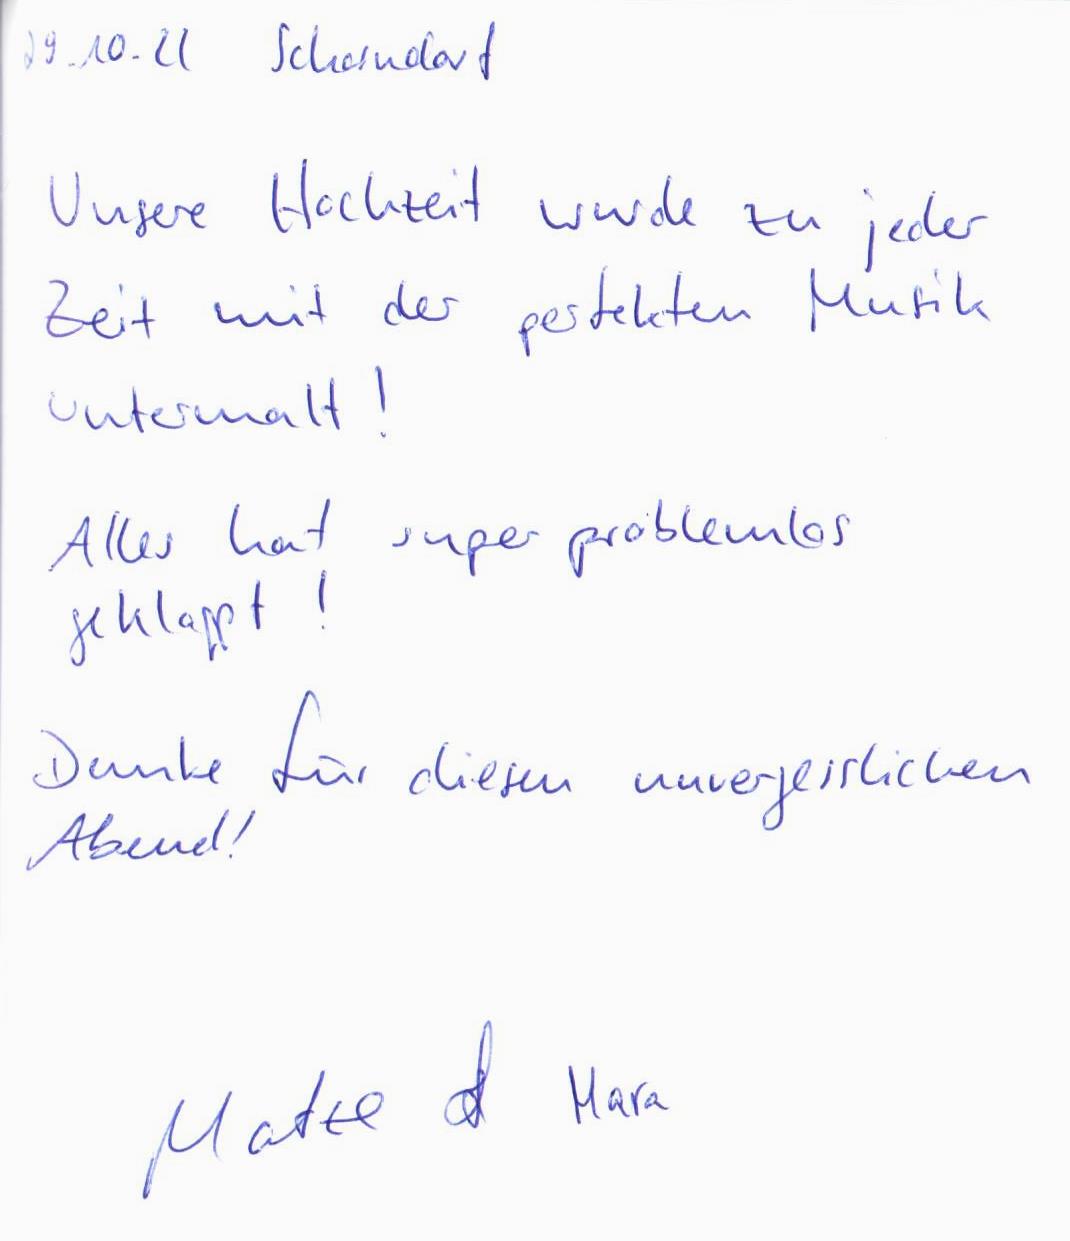 29.10.21 Schorndorf
Unsere Hochzeit wurde zu jeder
Zeit mit der perfekten Musik
untermalt!
Alles hat super problemlos
geklappt!
Danke für diesen unvergesslichen
Abend!
Matze & Mara